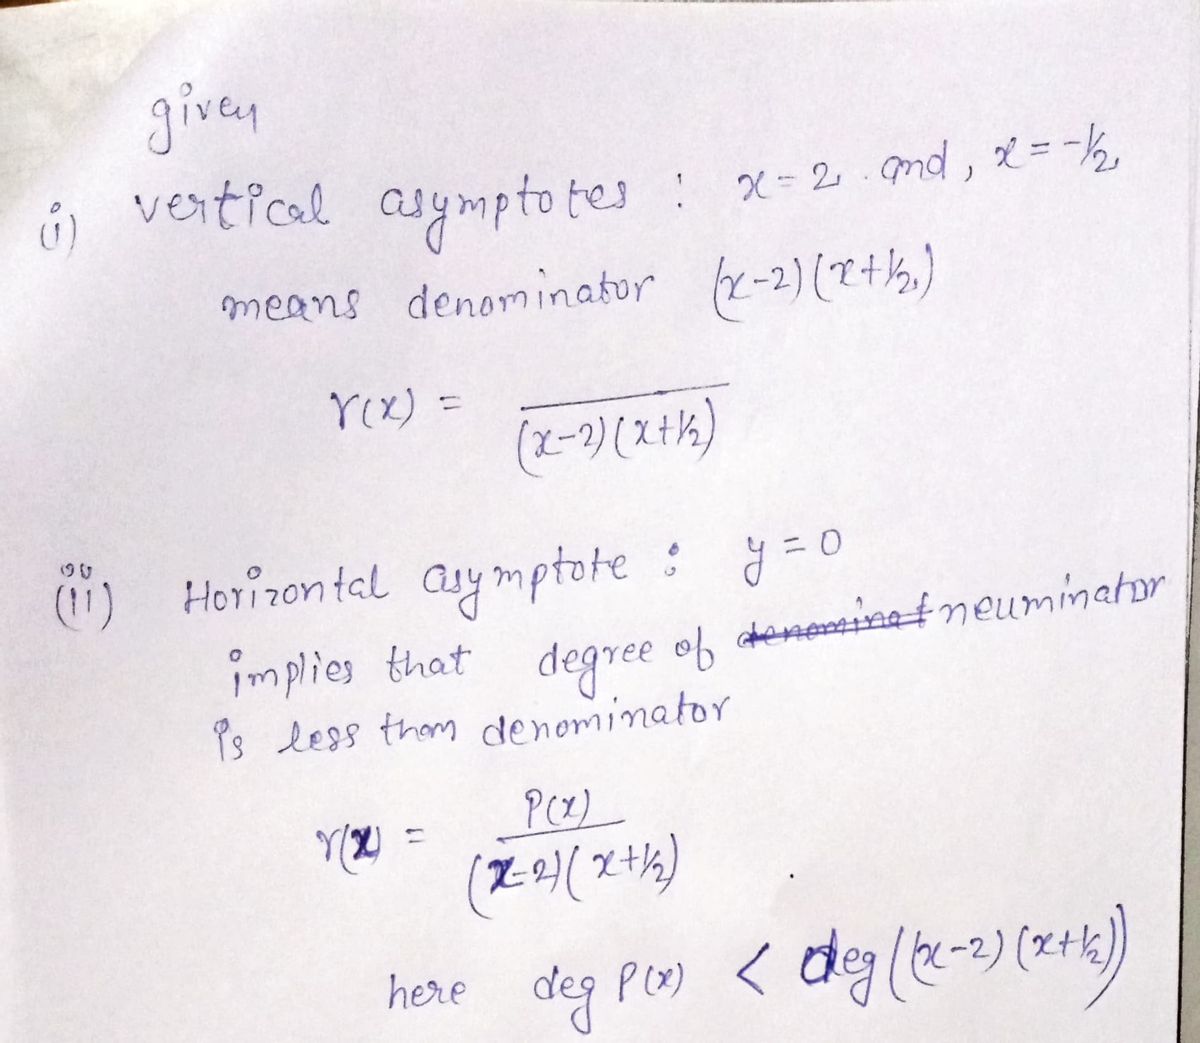 given
i) vertical asymptotes : x = 2 and, x = -1/2
means denominator (x-2)(x+1/2)
r(x) = ___
(x-2)(x+1/2)
(ii) Horizontal asymptote : y = 0
implies that degree of denominat neuminator
is less than denominator
P(x)
r(x) = ___
(x-2)(x+1/2)
here deg P(x) < deg((x-2)(x+1/2))